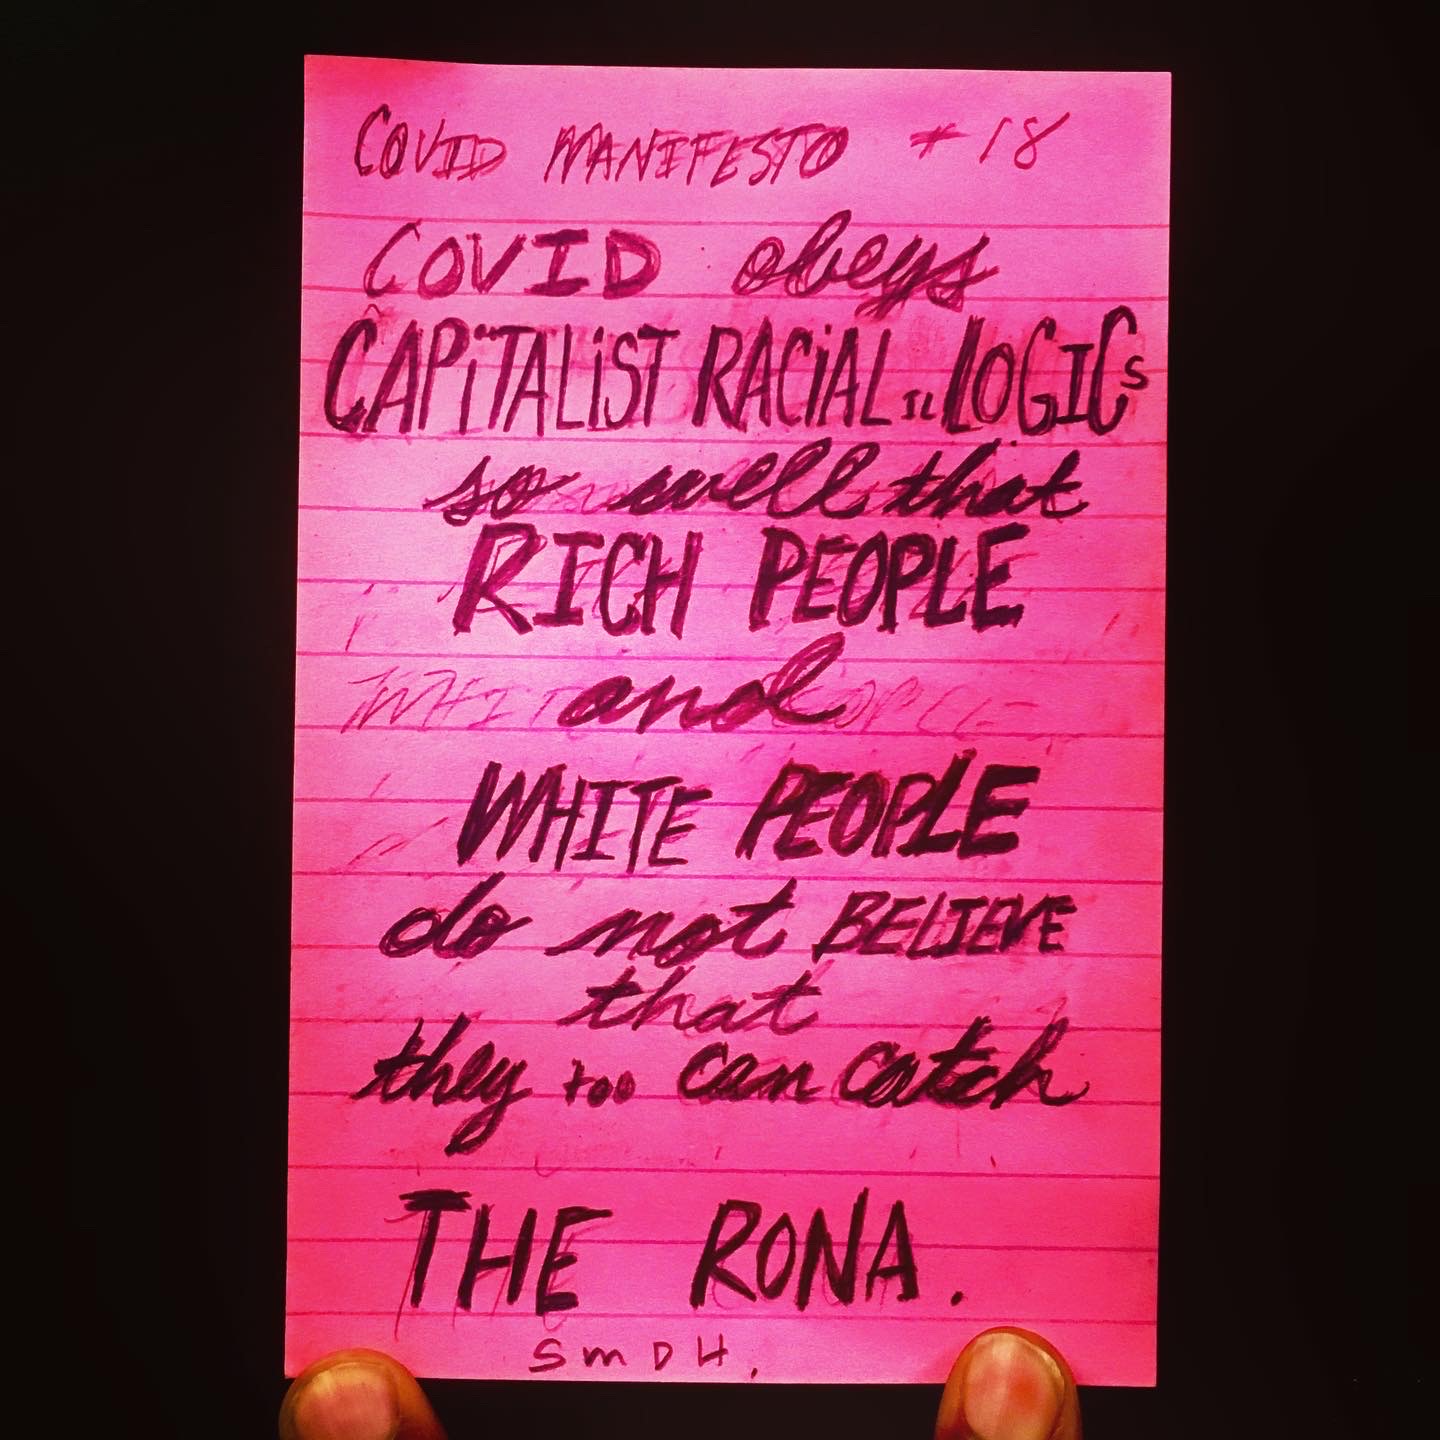 COVID MANIFESTO #18
COVID obeys
CAPiTALiST RACiAL ILLOGICS
so well that
RICH PEOPLE
and
WHITE PEOPLE
do not BELIEVE
that
they too can catch
THE RONA.
SMDH.